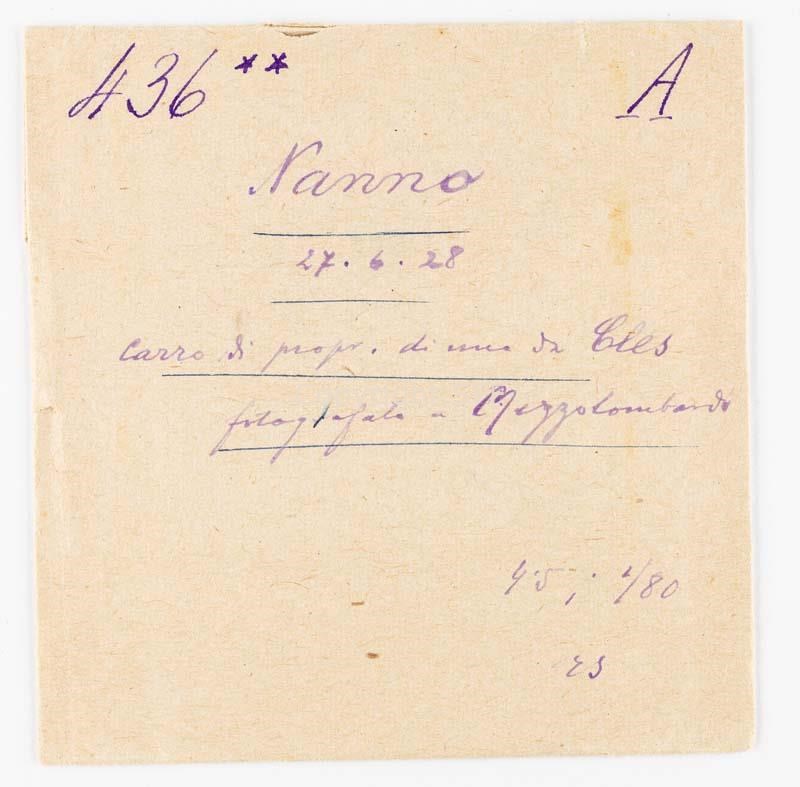 436** A
Nanno
27. 6. 28
Carro di propr. di uno da Cles
fotografato a Mezzolombardo
4.5 ; 1/80